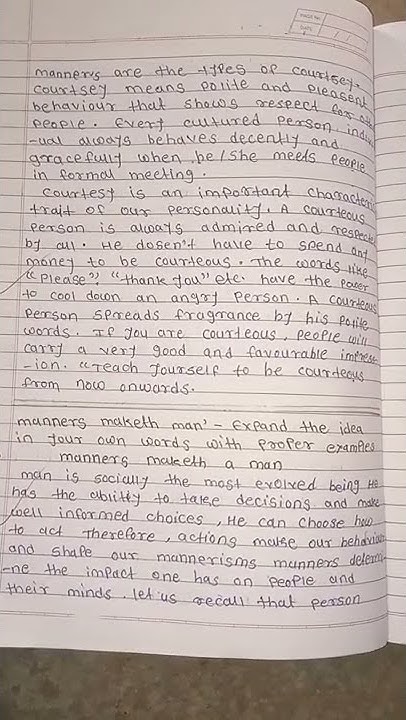 manners are the types of courtsey.
courtsey means polite and pleasent
behaviour that shows respect for
people. Every cultured person indivi
-ual always behaves decently and
gracefully when he/she meets people
in formal meeting.
courtesy is an important character
trait of our personality. A courteous
person is always admired and respecte
by all. He dosen't have to spend any
money to be courteous. The words like
"Please", "thank you" etc. have the power
to cool down an angry person. A courteous
person spreads fragrance by his polite
words. If you are courteous, people will
carry a very good and favourable impress
-ion. "Teach yourself to be courteous
from now onwards.
manners maketh man' - Expand the idea
in your own words with proper examples
manners maketh a man
man is socially the most evolved being He
has the ability to take decisions and make
well informed choices, He can choose how
to act therefore, actions make our behaviour
and shape our mannerisms manners determi
-ne the impact one has on people and
their minds. let us recall that person